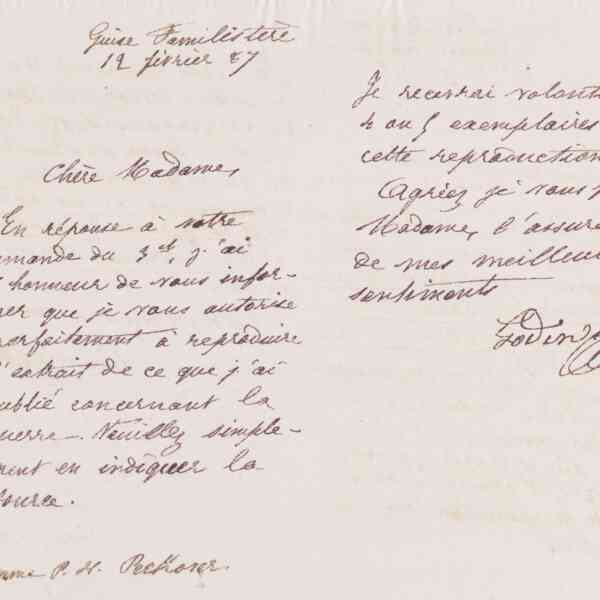 Guise Familistère
12 février 87
Chère Madame,
En réponse à votre
emande du 3 ct, j'ai
l'honneur de vous infor-
er que je vous autorise
parfaitement à reproduire
l'extrait de ce que j'ai
ublié concernant la
uerre. Veuillez simple-
ment en indiquer la
source.
me P. H. Peckover.
Je recevrai volont
4 ou 5 exemplaires
cette reproduction
Agréez je vous
Madame, l'assur
de mes meilleu
sentiments
Godin